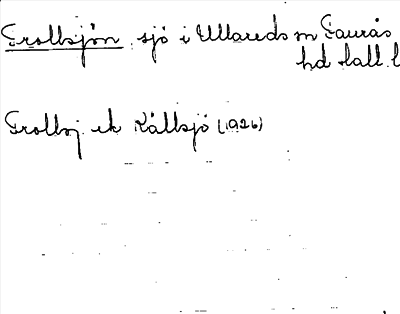 Trollsjön sjö i Ullareds sn Faurås
hd Hall. l
Trollsj. ek Källsjö (1926)